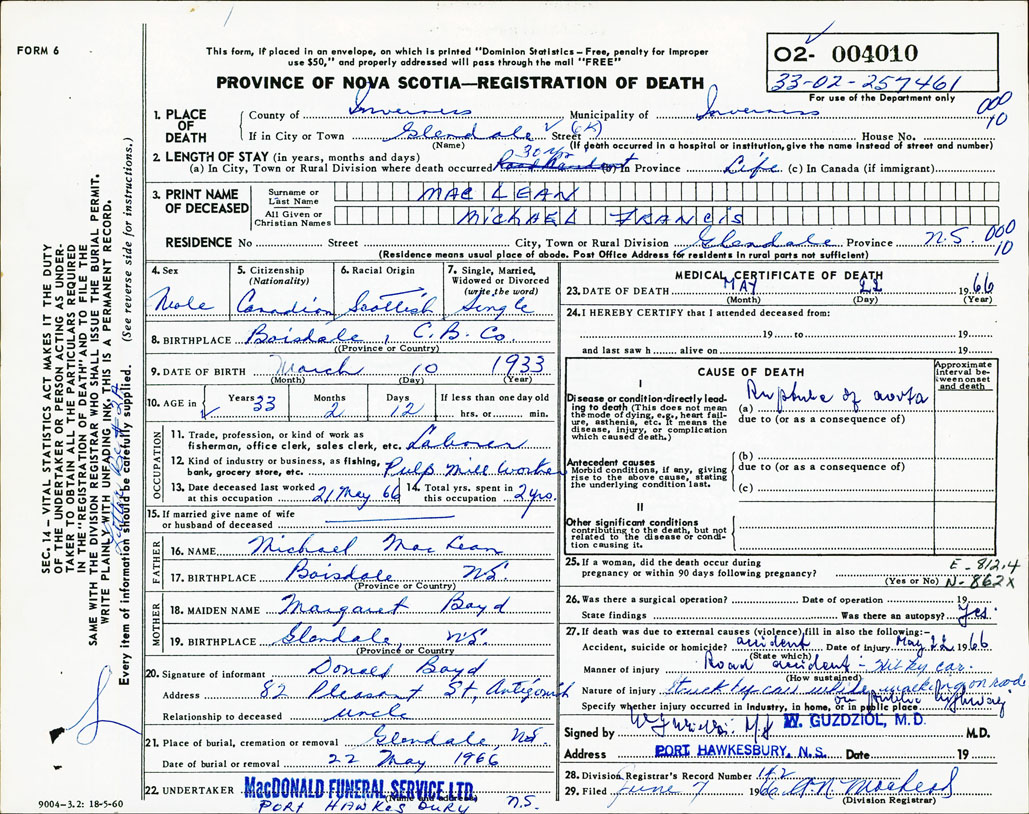 FORM 6
This form, if placed in an envelope, on which is printed "Dominion Statistics – Free, penalty for improper
use $50," and properly addressed will pass through the mail "FREE"
O2- 004010
33-02-257461
For use of the Department only
PROVINCE OF NOVA SCOTIA—REGISTRATION OF DEATH
SEC. 14 – VITAL STATISTICS ACT MAKES IT THE DUTY
OF THE UNDERTAKER OR PERSON ACTING AS UNDER-
TAKER TO OBTAIN ALL THE PARTICULARS REQUIRED
IN THE "REGISTRATION OF DEATH" AND TO FILE THE
SAME WITH THE DIVISION REGISTRAR WHO SHALL ISSUE THE BURIAL PERMIT.
WRITE PLAINLY WITH UNFADING INK. THIS IS A PERMANENT RECORD.
Every item of information should be carefully supplied. (See reverse side for instructions.)
1. PLACE OF DEATH
County of Inverness Municipality of Inverness 000 10
If in City or Town Glendale Street House No.
(Name) (If death occurred in a hospital or institution, give the name instead of street and number)
2. LENGTH OF STAY (in years, months and days) 30 yrs
(a) In City, Town or Rural Division where death occurred (b) In Province Life (c) In Canada (if immigrant)
3. PRINT NAME OF DECEASED
Surname or Last Name MAC LEAN
All Given or Christian Names MICHAEL FRANCIS
RESIDENCE No Street City, Town or Rural Division Glendale Province N.S. 000 10
(Residence means usual place of abode. Post Office Address for residents in rural parts not sufficient)
4. Sex Male
5. Citizenship (Nationality) Canadian
6. Racial Origin Scottish
7. Single, Married, Widowed or Divorced (write the word) Single
8. BIRTHPLACE Boisdale, C. B. Co.
(Province or Country)
9. DATE OF BIRTH March 10 1933
(Month) (Day) (Year)
10. AGE in Years 33 Months 2 Days 12 If less than one day old hrs. or min.
OCCUPATION
11. Trade, profession, or kind of work as
fisherman, office clerk, sales clerk, etc. Laborer
12. Kind of industry or business, as fishing,
bank, grocery store, etc. Pulp Mill Worker
13. Date deceased last worked at this occupation 21 May 66
14. Total yrs. spent in this occupation 2 yrs.
15. If married give name of wife
or husband of deceased
FATHER
16. NAME Michael MacLean
17. BIRTHPLACE Boisdale N.S.
(Province or Country)
MOTHER
18. MAIDEN NAME Margaret Boyd
19. BIRTHPLACE Glendale, N.S.
(Province or Country)
20. Signature of informant Donald Boyd
Address 82 Pleasant St, Antigonish
Relationship to deceased uncle
21. Place of burial, cremation or removal Glendale, N.S.
Date of burial or removal 22 May 1966
22. UNDERTAKER MacDONALD FUNERAL SERVICE LTD.
(Name and address)
PORT HAWKESBURY N.S.
9004-3.2: 18-5-60
MEDICAL CERTIFICATE OF DEATH
23. DATE OF DEATH MAY 22 1966
(Month) (Day) (Year)
24. I HEREBY CERTIFY that I attended deceased from:
19 to 19
and last saw h alive on 19
CAUSE OF DEATH
Approximate interval between onset and death
I
Disease or condition directly lead-
ing to death (This does not mean
the mode of dying, e.g., heart fail-
ure, asthenia, etc. It means the
disease, injury, or complication
which caused death.)
(a) Rupture of aorta
due to (or as a consequence of)
Antecedent causes
Morbid conditions, if any, giving
rise to the above cause, stating
the underlying condition last.
(b)
due to (or as a consequence of)
(c)
II
Other significant conditions
contributing to the death, but not
related to the disease or condi-
tion causing it.
25. If a woman, did the death occur during
pregnancy or within 90 days following pregnancy?
(Yes or No)
E-812.4
N-862X
26. Was there a surgical operation? Date of operation 19
State findings Was there an autopsy? Yes.
27. If death was due to external causes (violence) fill in also the following:-
Accident, suicide or homicide? accident Date of injury May 22 1966
(State which)
Manner of injury Road accident - Hit by car.
(How sustained)
Nature of injury struck by car while walking on road
Specify whether injury occurred in Industry, in home, or in public place on public highway
Signed by W. GUZDZIOL, M.D. M.D.
Address PORT HAWKESBURY, N.S. Date 19
28. Division Registrar's Record Number 142
29. Filed June 7 1966
(Division Registrar)